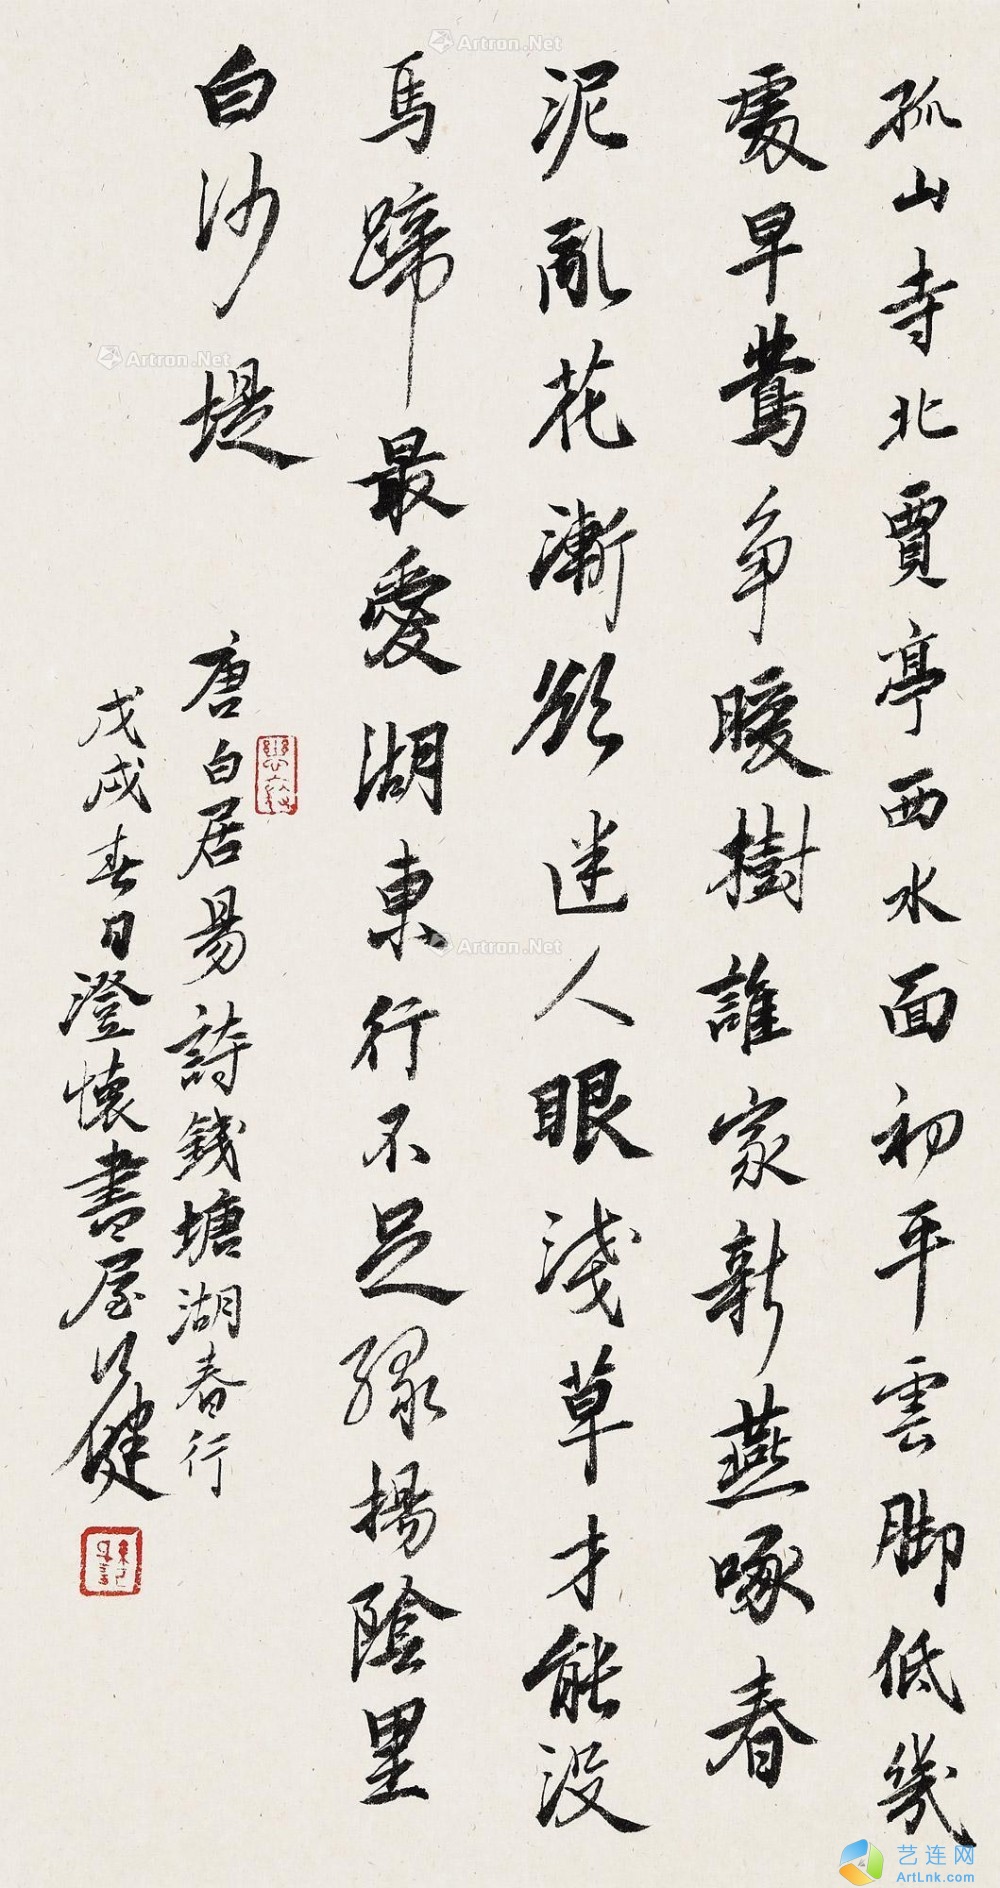 孤山寺北賈亭西水面初平雲脚低幾
處早鶯争暖樹誰家新燕啄春
泥亂花漸欲迷人眼淺草才能沒
馬蹄最愛湖東行不足綠楊陰里
白沙堤
唐白居易詩錢塘湖春行
戊戌春日澄懷書屋 健
Artron.Net
Artron.Net
Artron.Net
艺连网
ArtLnk.com